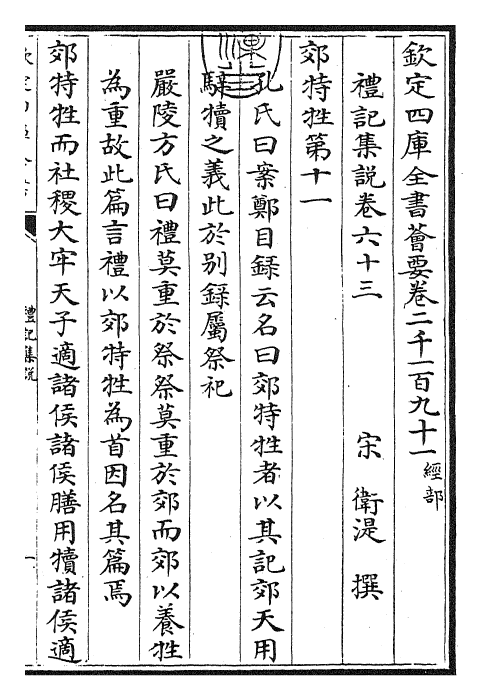 欽定四庫全書薈要卷二千一百九十一經部
禮記集說卷六十三
宋 衛湜 撰
郊特牲第十一
孔氏曰案鄭目録云名曰郊特牲者以其記郊天用
騂犢之義此於别録屬祭祀
嚴陵方氏曰禮莫重於祭祭莫重於郊而郊以養牲
為重故此篇言禮以郊特牲為首因名其篇焉
郊特牲而社稷大牢天子適諸侯諸侯膳用犢諸侯適
禮記集說
一